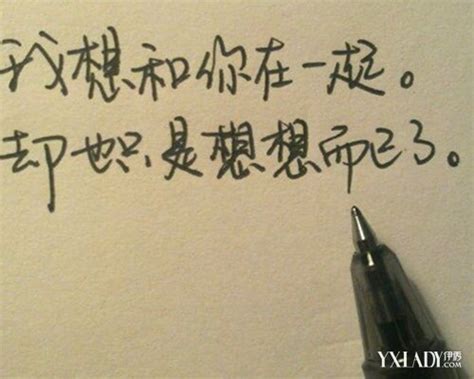 我想和你在一起。
却也只是想想而已了。
YXLADY伊秀
.COM